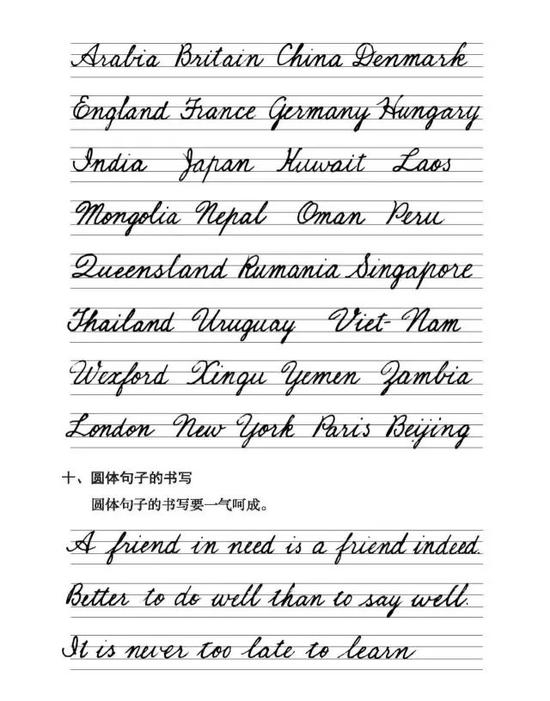 Arabia Britain China Denmark
England France Germany Hungary
India Japan Kuwait Laos
Mongolia Nepal Oman Peru
Queensland Rumania Singapore
Thailand Uruguay Viet-Nam
Wexford Xingu Yemen Zambia
London New York Paris Beijing
十、圆体句子的书写
圆体句子的书写要一气呵成。
A friend in need is a friend indeed.
Better to do well than to say well.
It is never too late to learn